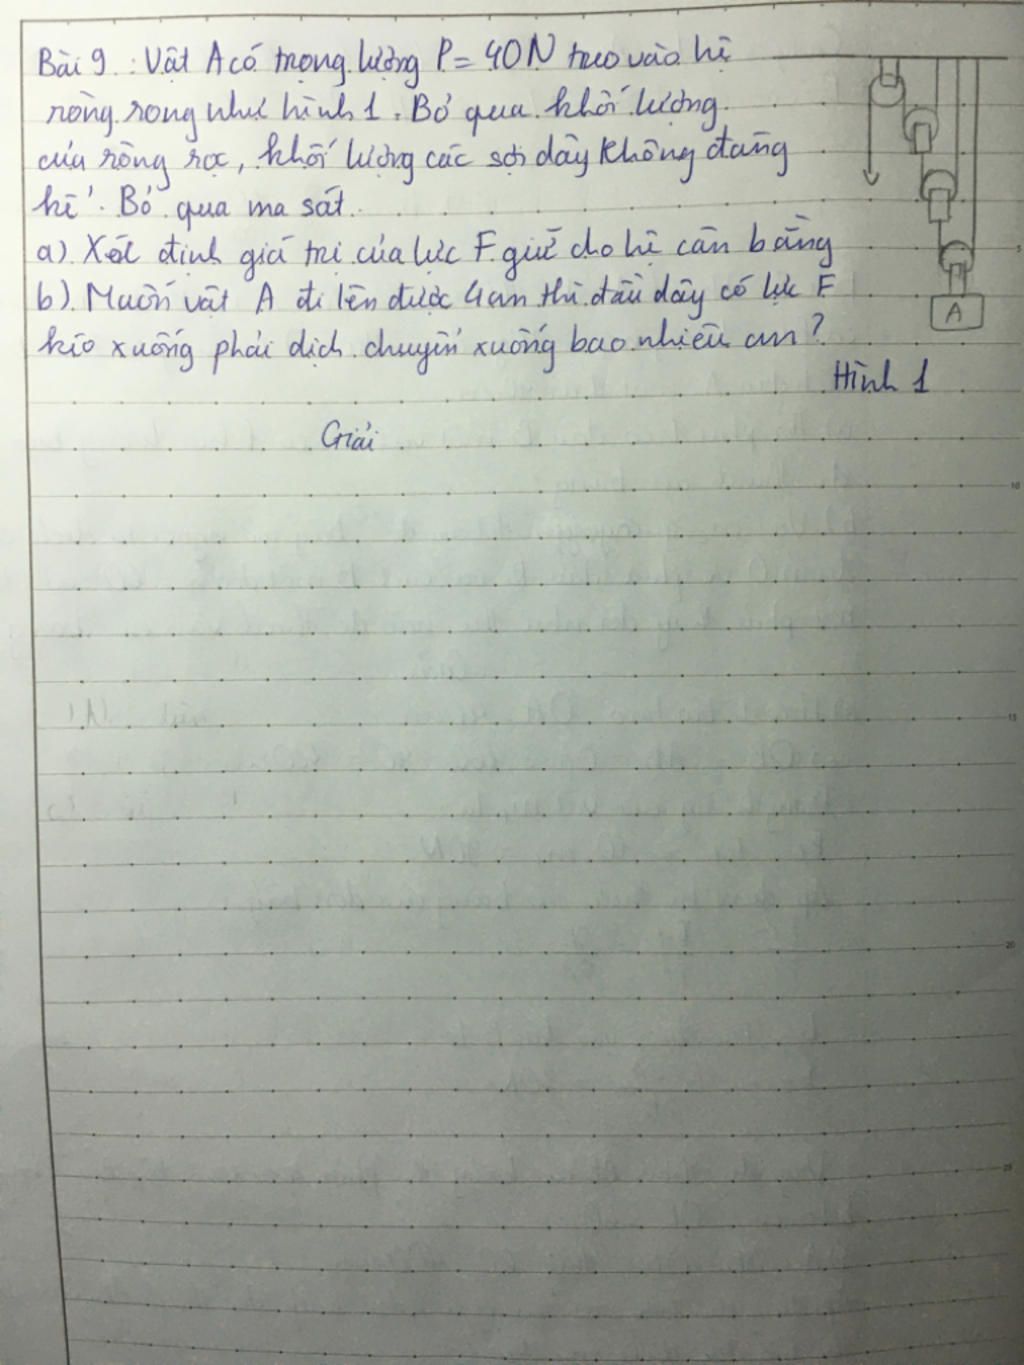 Bài 9 : Vật A có trọng lượng P = 40N treo vào hệ
ròng rọng như hình 1. Bỏ qua khối lượng
của ròng rọc, khối lượng các sợi dây không đáng
kể. Bỏ qua ma sát.
a). Xác định giá trị của lực F giữ cho hệ cân bằng
b). Muốn vật A đi lên được 4cm thì đầu dây có lực F
kéo xuống phải dịch chuyển xuống bao nhiêu cm?
A
Hình 1
Giải
5
10
15
20
25